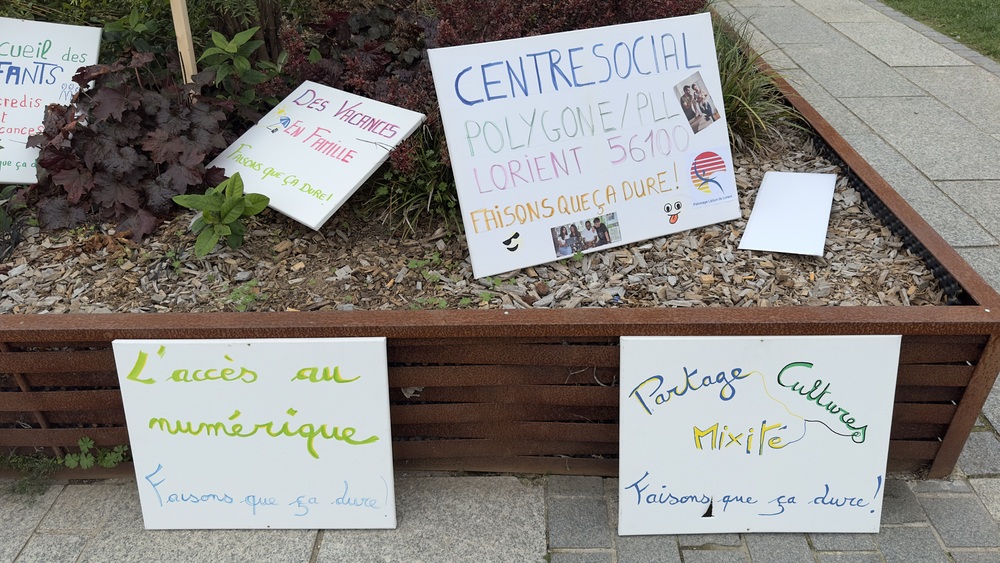 cueil des
FANTS
credis
et
vacances
que ça d
Des Vacances
en Famille
Faisons que ça dure!
CENTRE SOCIAL
POLYGONE/PLL
LORIENT 56100
FAISONS QUE ÇA DURE!
L'accès au
numérique
Faisons que ça dure!
Partage Cultures
Mixité
Faisons que ça dure!